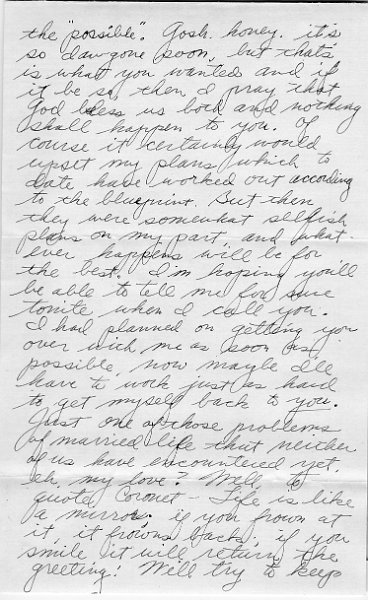 the "possible". Gosh, honey, it's
so dawgone soon, but that's
is what you wanted and if
it be so, then I pray that
God bless us both and nothing
shall happen to you. Of
course it certainly would
upset my plans which to
date have worked out according
to the blueprint. But then
they were somewhat selfish
plans on my part, and what-
ever happens will be for
the best. I'm hoping you'll
be able to tell me for sure
tonite when I call you.
I had planned on getting you
over with me as soon as
possible, now maybe I'll
have to work just as hard
to get myself back to you.
Just one of those problems
of married life that neither
of us have encountered yet,
eh, my love? Well to
quote Coronet - Life is like
a mirror. if you frown at
it, it frowns back, if you
smile it will return the
greeting! We'll try to keep